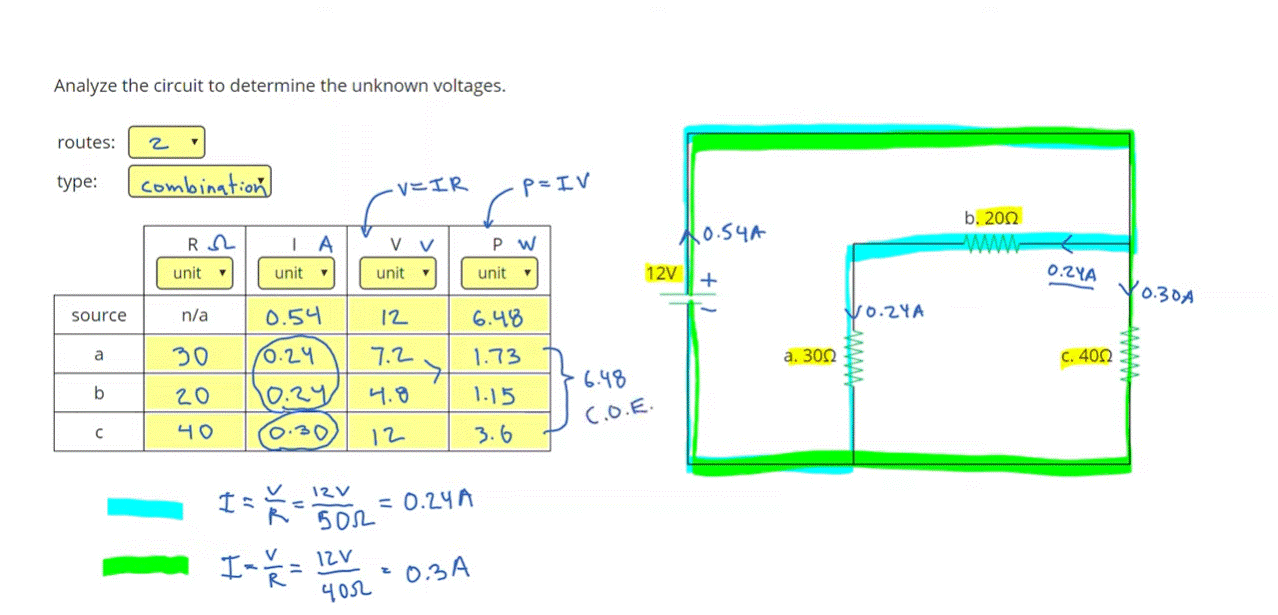 Analyze the circuit to determine the unknown voltages.
routes: 2
type: combination
V=IR P=IV
R Ω I A V V P W
unit unit unit unit
source n/a 0.54 12 6.48
a 30 0.24 7.2 1.73
b 20 0.24 4.8 1.15
c 40 0.30 12 3.6
6.48
C.O.E.
I = V/R = 12V/50Ω = 0.24A
I = V/R = 12V/40Ω = 0.3A
b. 20Ω
0.54A
12V + −
0.24A
0.30A
0.24A
a. 30Ω
c. 40Ω